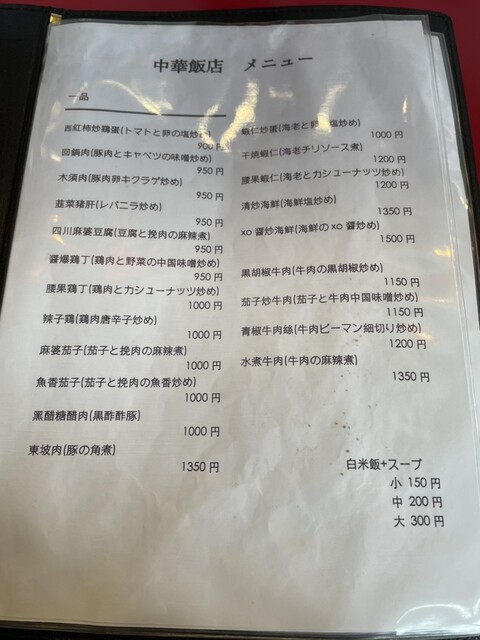 中華飯店 メニュー
一品
西紅柿炒鶏蛋(トマトと卵の塩炒め)
900 円
回鍋肉(豚肉とキャベツの味噌炒め)
950 円
木須肉(豚肉卵キクラゲ炒め)
950 円
韮菜猪肝(レバニラ炒め)
950 円
四川麻婆豆腐(豆腐と挽肉の麻辣煮)
950 円
醤爆鶏丁(鶏肉と野菜の中国味噌炒め)
950 円
腰果鶏丁(鶏肉とカシューナッツ炒め)
1000 円
辣子鶏(鶏肉唐辛子炒め)
1000 円
麻婆茄子(茄子と挽肉の麻辣煮)
1000 円
魚香茄子(茄子と挽肉の魚香炒め)
1000 円
黒醋糖醋肉(黒酢酢豚)
1000 円
東坡肉(豚の角煮)
1350 円
蝦仁炒蛋(海老と卵の塩炒め)
1000 円
干焼蝦仁(海老チリソース煮)
1200 円
腰果蝦仁(海老とカシューナッツ炒め)
1200 円
清炒海鮮(海鮮塩炒め)
1350 円
xo 醤炒海鮮(海鮮の xo 醤炒め)
1500 円
黒胡椒牛肉(牛肉の黒胡椒炒め)
1150 円
茄子炒牛肉(茄子と牛肉中国味噌炒め)
1150 円
青椒牛肉絲(牛肉ピーマン細切り炒め)
1200 円
水煮牛肉(牛肉の麻辣煮)
1350 円
白米飯+スープ
小 150 円
中 200 円
大 300 円